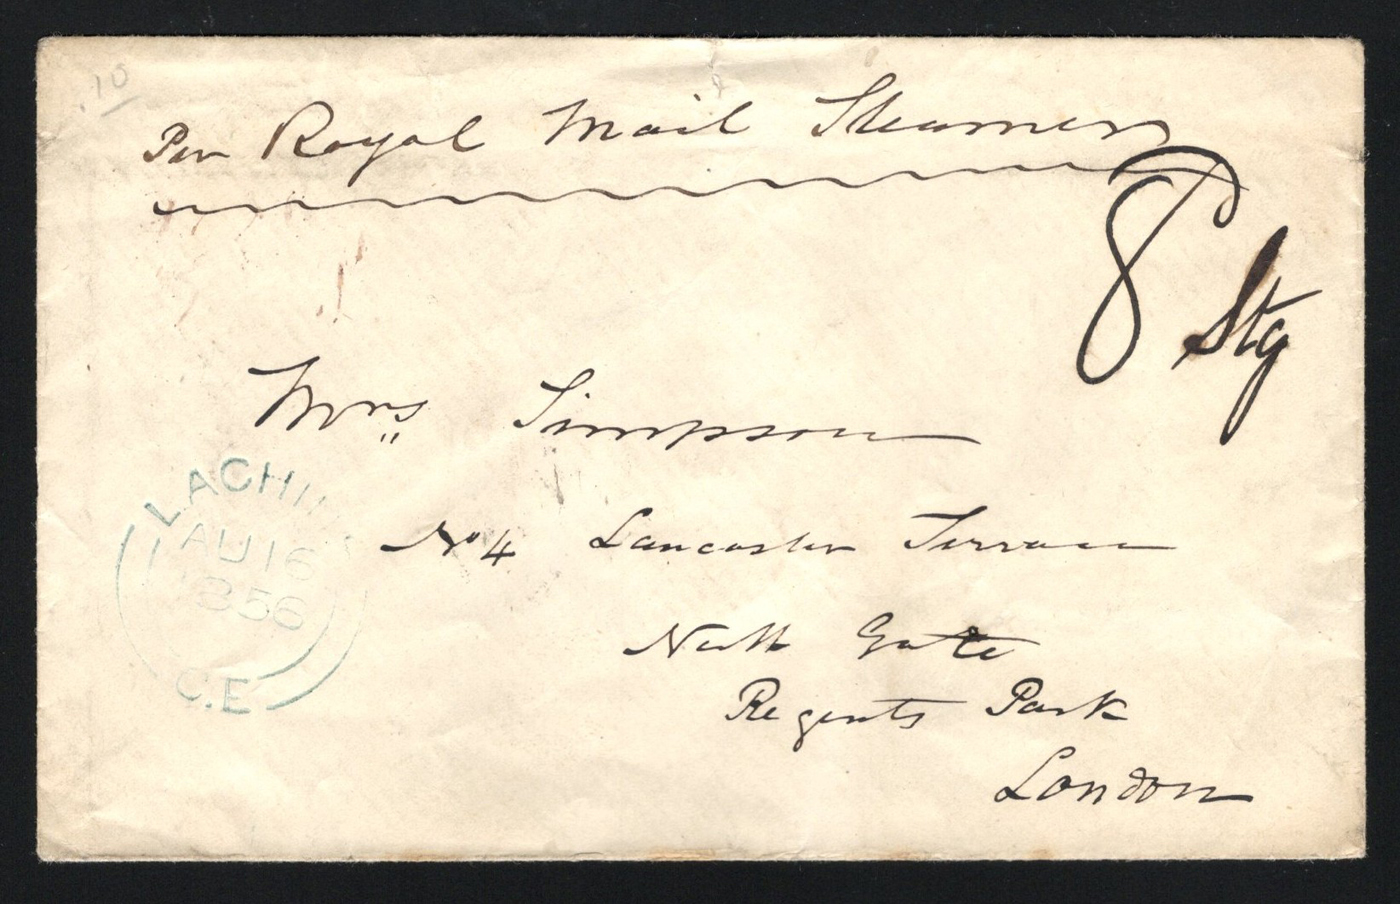 .10
Per Royal Mail Steamer
8 Stg
Mrs Simpson
No 4 Lancaster Terrace
North Gate
Regents Park
London
LACHIN
AU 16
1856
C.E